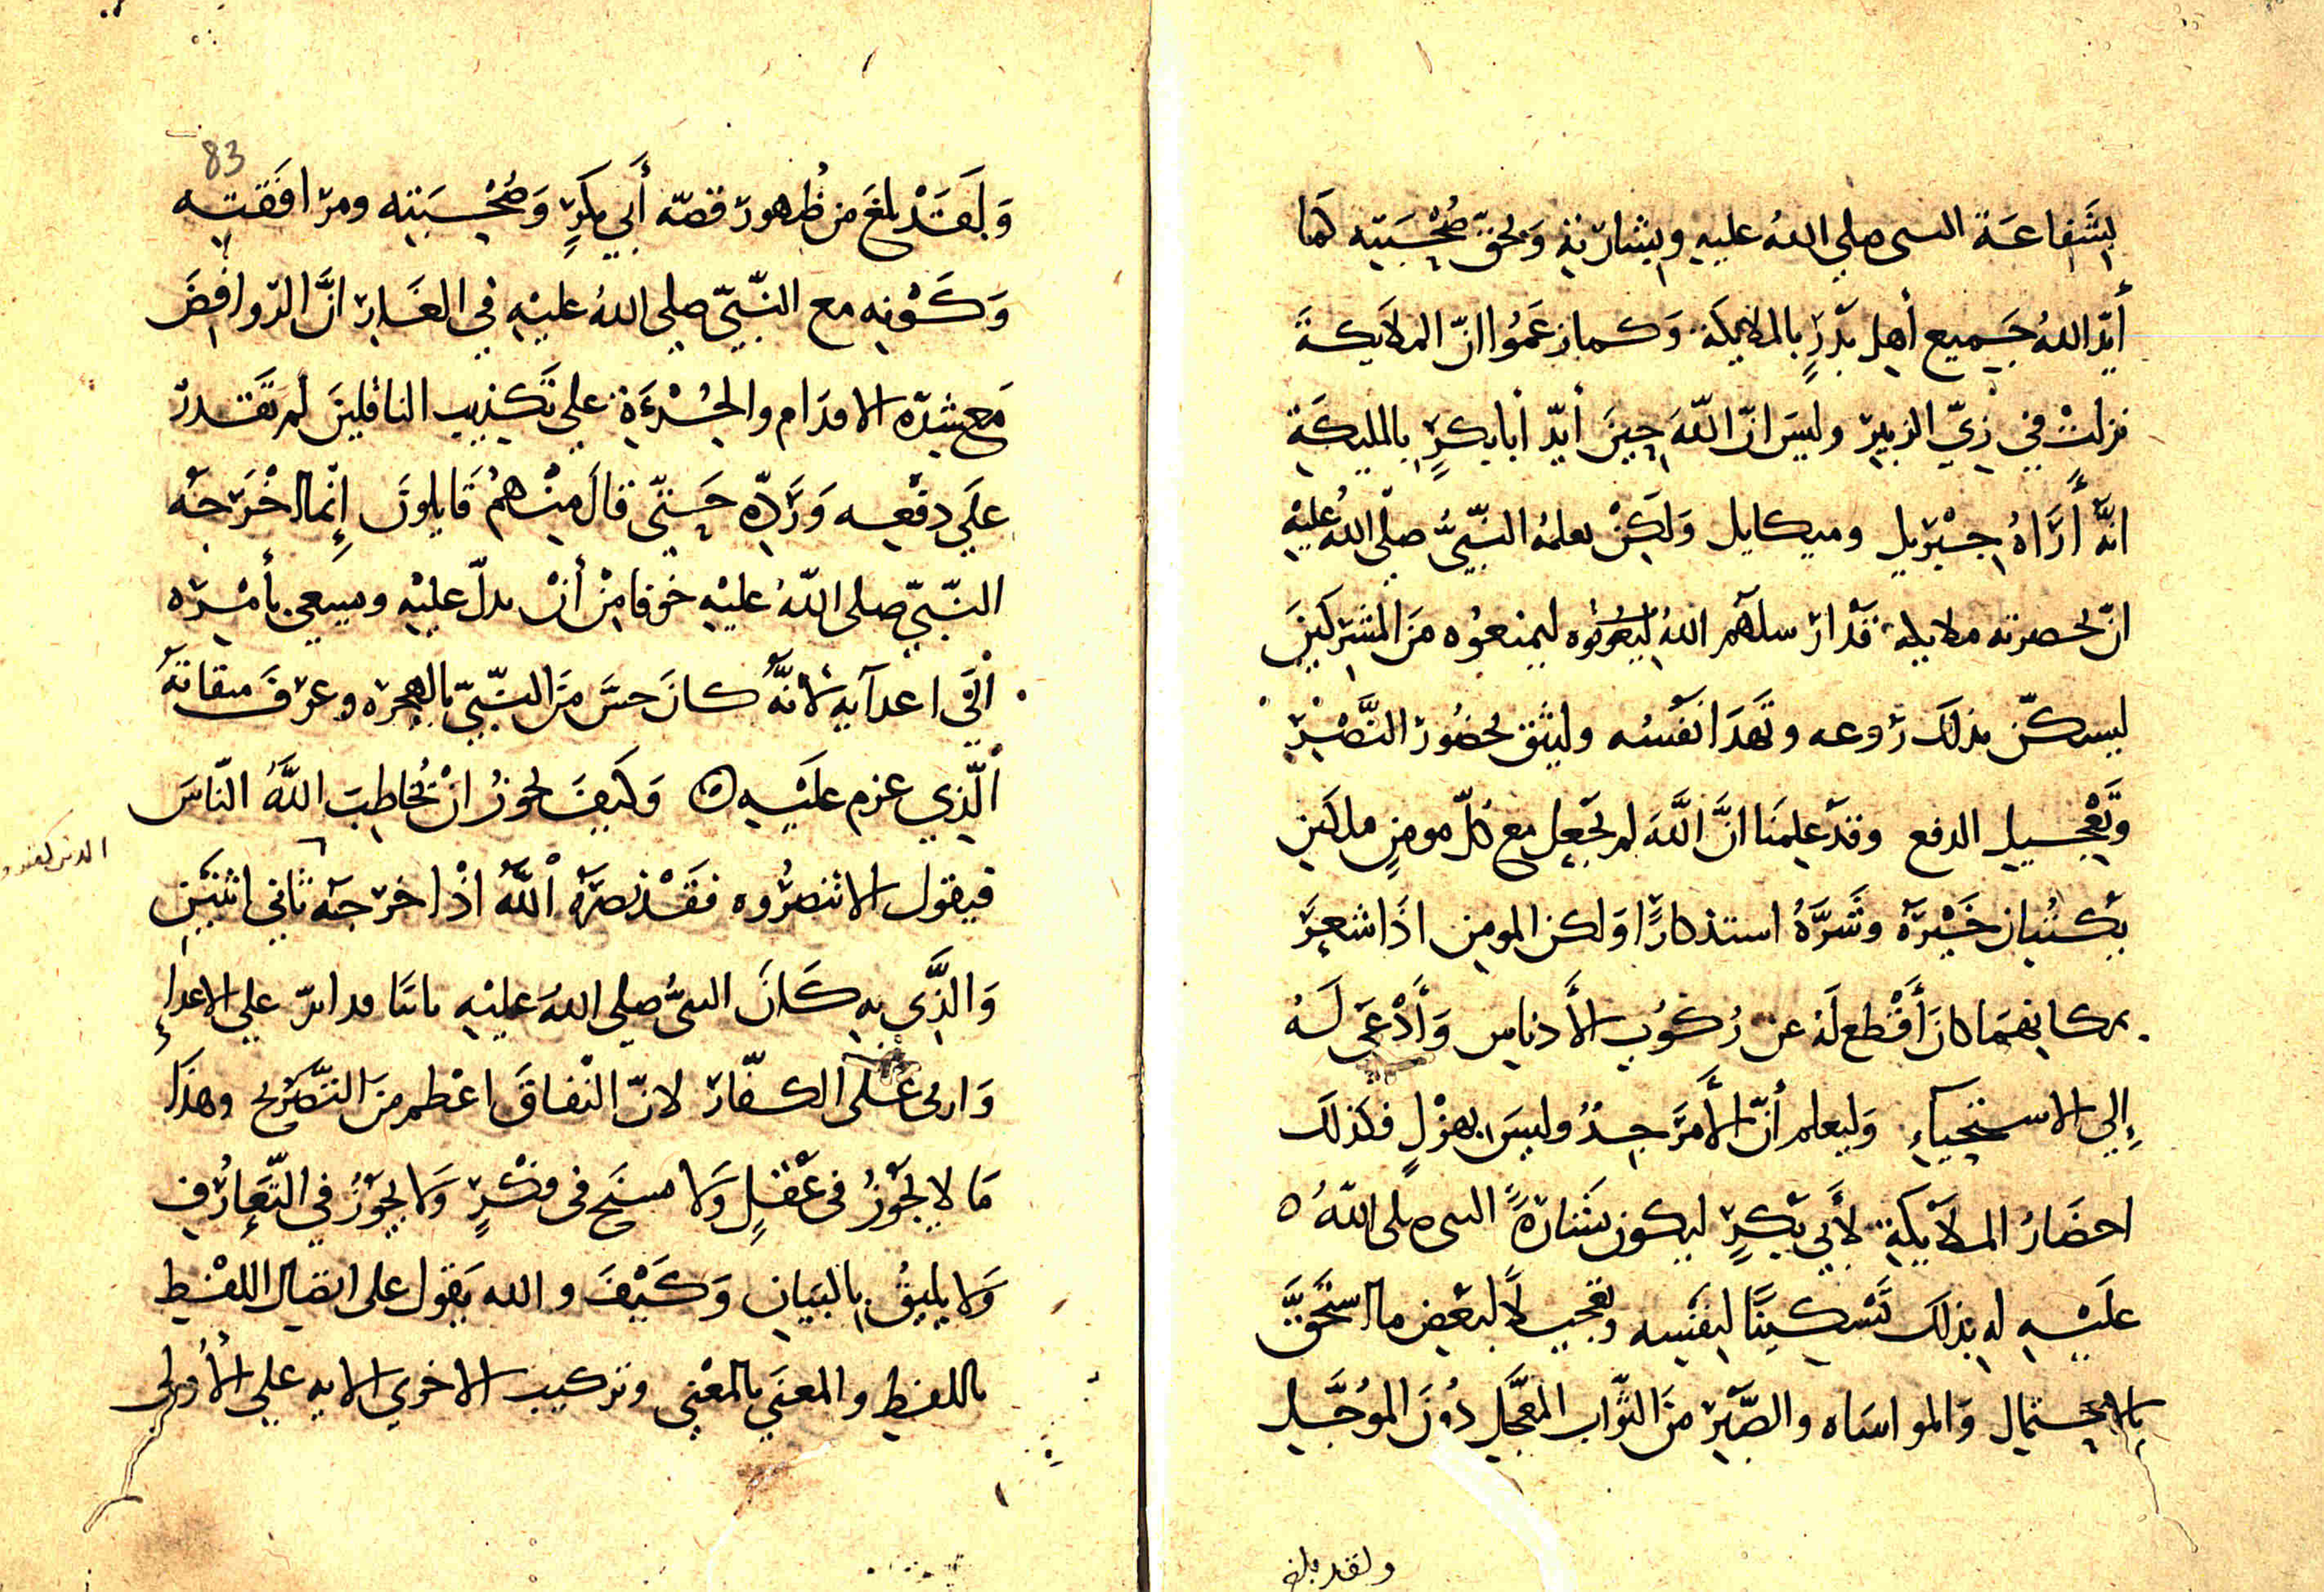 بِشَفاعَة النبى صلي اللهُ عليه وبِشارَتِهِ وَبحَقّ صُحْبَتِه كَما
أيّدَ اللهُ جَميع أهل بَدرٍ بالملائِكَة وَكما زعَمُوا انّ الملايكةَ
نزلتْ في زِيّ الزبير وليسَ انّ اللّهَ حِينَ أيّدَ أبابكرٍ بالمليكَةِ
انَّهُ أَرَاهُ جِبْريل وميكايل وَلكِنْ يعلمهُ النّبيُّ صلّى اللهُ عليْهِ
انّ بحضرته ملايكة قَدْ ارسلَهُم اللهُ ليمنعُوه مَنَ المشركينَ
ليسكّن بذلكَ رَوعه وتهدَا نَفسُه وليَثق بحضُور النَّصْر
وَتَعْجيل الدفع وقَدْ علِمنَا انَّ اللَّهَ لم يَجعل مع كلّ مومنٍ ملكَين
يكتُبان خَيْرَهُ وشَرَّهُ استذكارًا وَلكن المومن اذَا شعِرَ
بمكانهمَا كانَ أَقْطع لَهُ عن رُكوُبِ الأَدناسِ وَأَدْعَى لَهُ
إِلي الاستحْيآءِ وَليعلم أنّ الأَمرَ جِدٌّ وليسَ بهزْلٍ فكذلكَ
احضَارُ الملآيكَةِ لأَبي بَكرٍ ليكون بشارَةُ النبى صلى اللّهُ ه
عَلَيْهِ له بذلكَ تَسْكينًا لِنفسِه وتعجيلًا لبَعْض ما استحَقَّ
بالاحتمال وَالمواسَاه والصَّبْر مِنَ الثّوَاب المعَجَّل دُونَ الموُجَّل
ولقد بلغ
83
وَلَقَدْ بلغَ من ظُهور قصّه أَبي بكرٍ وَصُحْبَتِه ومرافَقَتِه
وَكَوْنِه مع النّبيّ صلى اللهُ عليْهِ في الغَار انَّ الرّوافِضَ
مَع شِدّه الاقدَام والجُرْءَةِ علي تَكذيبِ الناقلينَ لم تَقدر
علَي دفعه وَرَدّه حَتّي قالَ مِنْهمُ قَايلونَ إِنّما اخْرَجَه
النّبيّ صلى اللّهُ عليْهِ خَوفا مِنْ أنْ يدلّ عليْهِ ويسعي بأمْره
الَي اعدآيه لأنّه كانَ حسَّ مَن النّبيّ بالهجره وعرفَ ميقاتَهُ
الّذِي عزم علَيْهِ ه وَكَيفَ يجوزُ انْ يُخاطِبَ اللَّهُ النّاسَ
فيقول الا تنصرُوه فقَدْ نصرَهُ اللّهُ اذْ اخرجَهُ ثاني اثنَيْن
وَالذَّي به كَانَ النبىُّ صلى اللهُ عليْهِ ثانيًا قد ابرّ علي الاعداءِ
وَاربى عَلى الكفّار لانّ النّفاقَ اعْظم منَ التصْريح وهذَا
مَا لا يجَوزُ فى عَقلٍ وَلا يسنَح فى فكْرٍ وَلا يجوزُ في التّعَارُف
وَلا يليقُ بالبَيَان وَكَيْفَ والله يَقول على اتصال اللفظ
باللفظ والمعنَي بالمعْني وتركيب الاخري الايه علي الأُولى